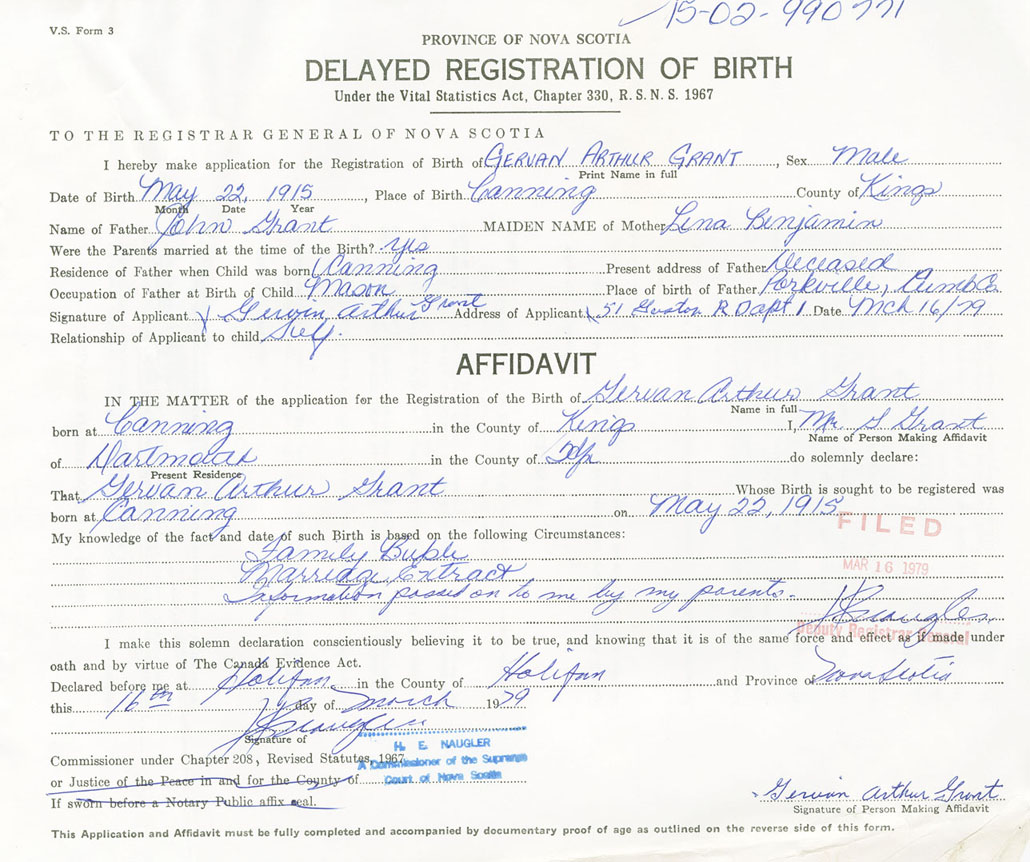 15-02-990771
V.S. Form 3
PROVINCE OF NOVA SCOTIA
DELAYED REGISTRATION OF BIRTH
Under the Vital Statistics Act, Chapter 330, R. S. N. S. 1967
TO THE REGISTRAR GENERAL OF NOVA SCOTIA
I hereby make application for the Registration of Birth of GERVAN ARTHUR GRANT, Sex Male
Print Name in full
Date of Birth May 22, 1915, Place of Birth Canning County of Kings
Month Date Year
Name of Father John Grant MAIDEN NAME of Mother Lena Benjamin
Were the Parents married at the time of the Birth? yes
Residence of Father when Child was born Canning Present address of Father Deceased
Occupation of Father at Birth of Child Mason Place of birth of Father
Signature of Applicant Gervin Arthur Grant Address of Applicant 51 R D apt 1 Date Mch 16/79
Relationship of Applicant to child Self.
AFFIDAVIT
IN THE MATTER of the application for the Registration of the Birth of Gervan Arthur Grant
Name in full
born at Canning in the County of Kings I, Mr G Grant
Name of Person Making Affidavit
of Dartmouth in the County of Hfx do solemnly declare:
Present Residence
That Gervan Arthur Grant Whose Birth is sought to be registered was
born at Canning on May 22, 1915
FILED
My knowledge of the fact and date of such Birth is based on the following Circumstances:
Family Buble
MAR 16 1979
Marriage Extract
Information passed on to me by my parents.
HENaugler
Deputy Registrar General
I make this solemn declaration conscientiously believing it to be true, and knowing that it is of the same force and effect as if made under
oath and by virtue of The Canada Evidence Act.
Declared before me at Halifax in the County of Halifax and Province of Nova Scotia
this 16th day of March 1979
HENaugler
Signature of
H. E. NAUGLER
Commissioner under Chapter 208, Revised Statutes, 1967
A Commissioner of the Supreme
or Justice of the Peace in and for the County of
Court of Nova Scotia
If sworn before a Notary Public affix seal.
Gervin Arthur Grant
Signature of Person Making Affidavit
This Application and Affidavit must be fully completed and accompanied by documentary proof of age as outlined on the reverse side of this form.